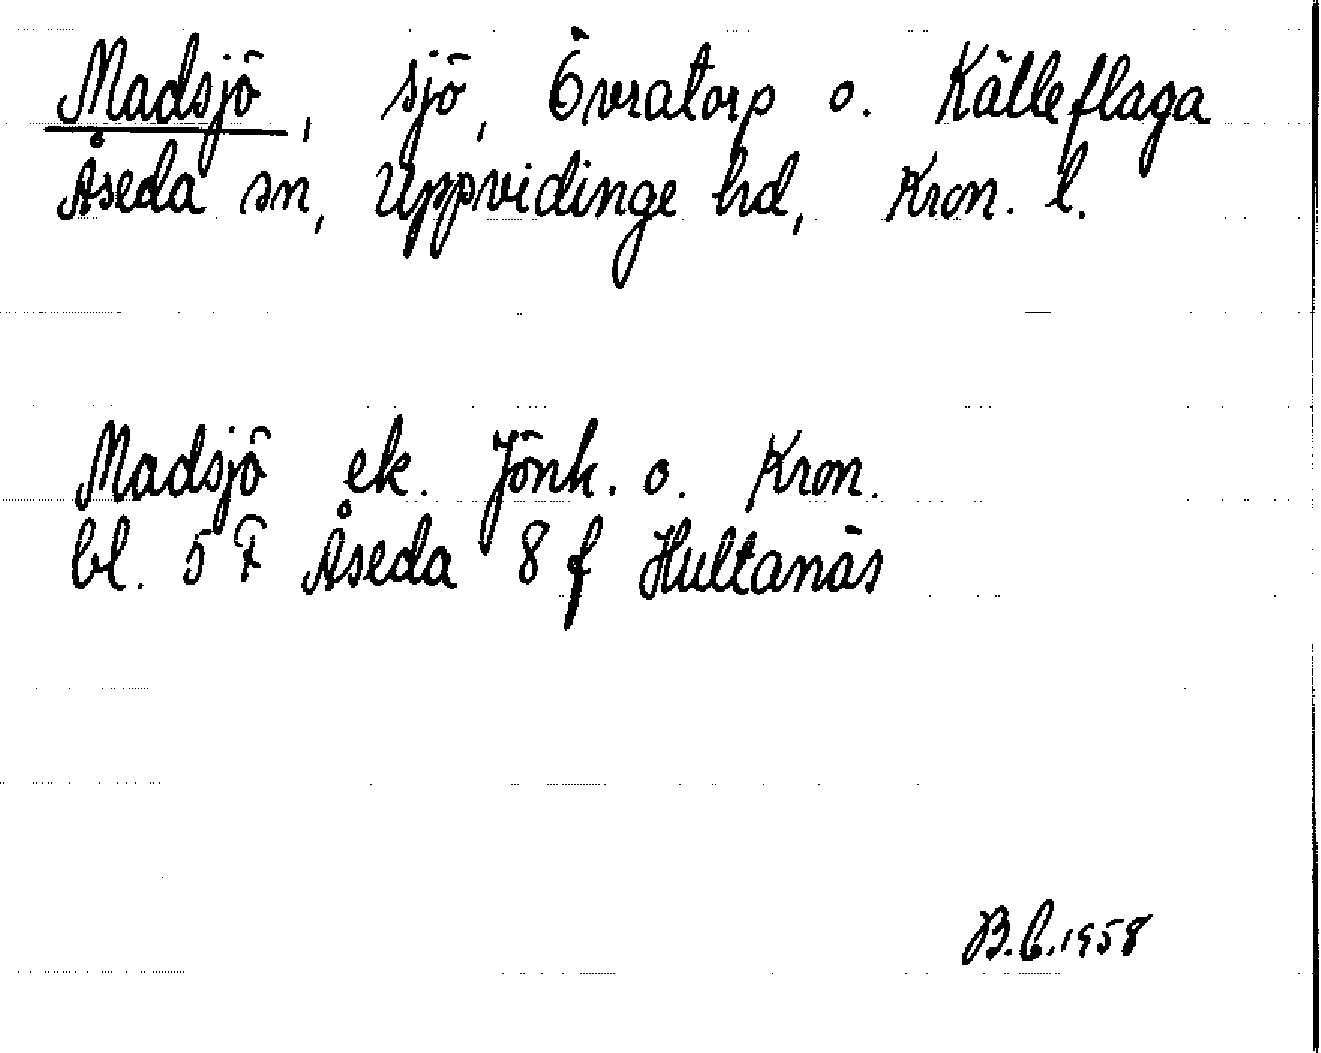 Madsjö, sjö, Övratorp o. Källeflaga
Åseda sn, Uppvidinge hd, Kron. l.
Madsjö ek. Jönk. o. Kron.
bl. 5 F Åseda 8 f Hultanäs
B.C. 1958